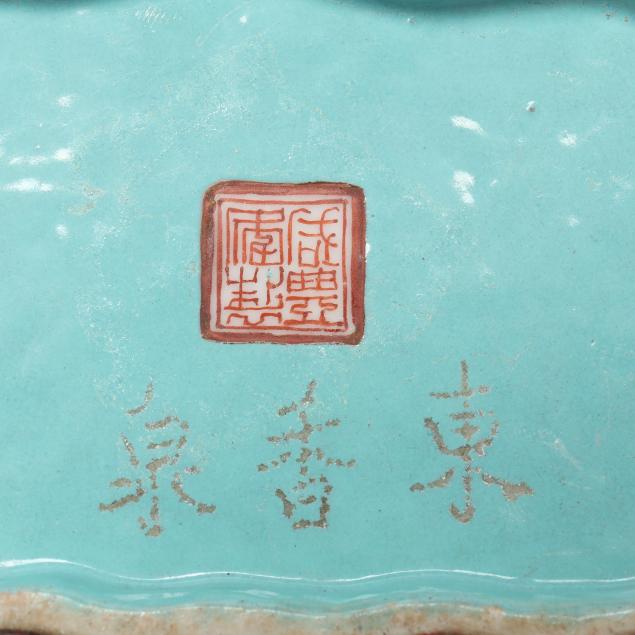 咸豐
年製
東香泉